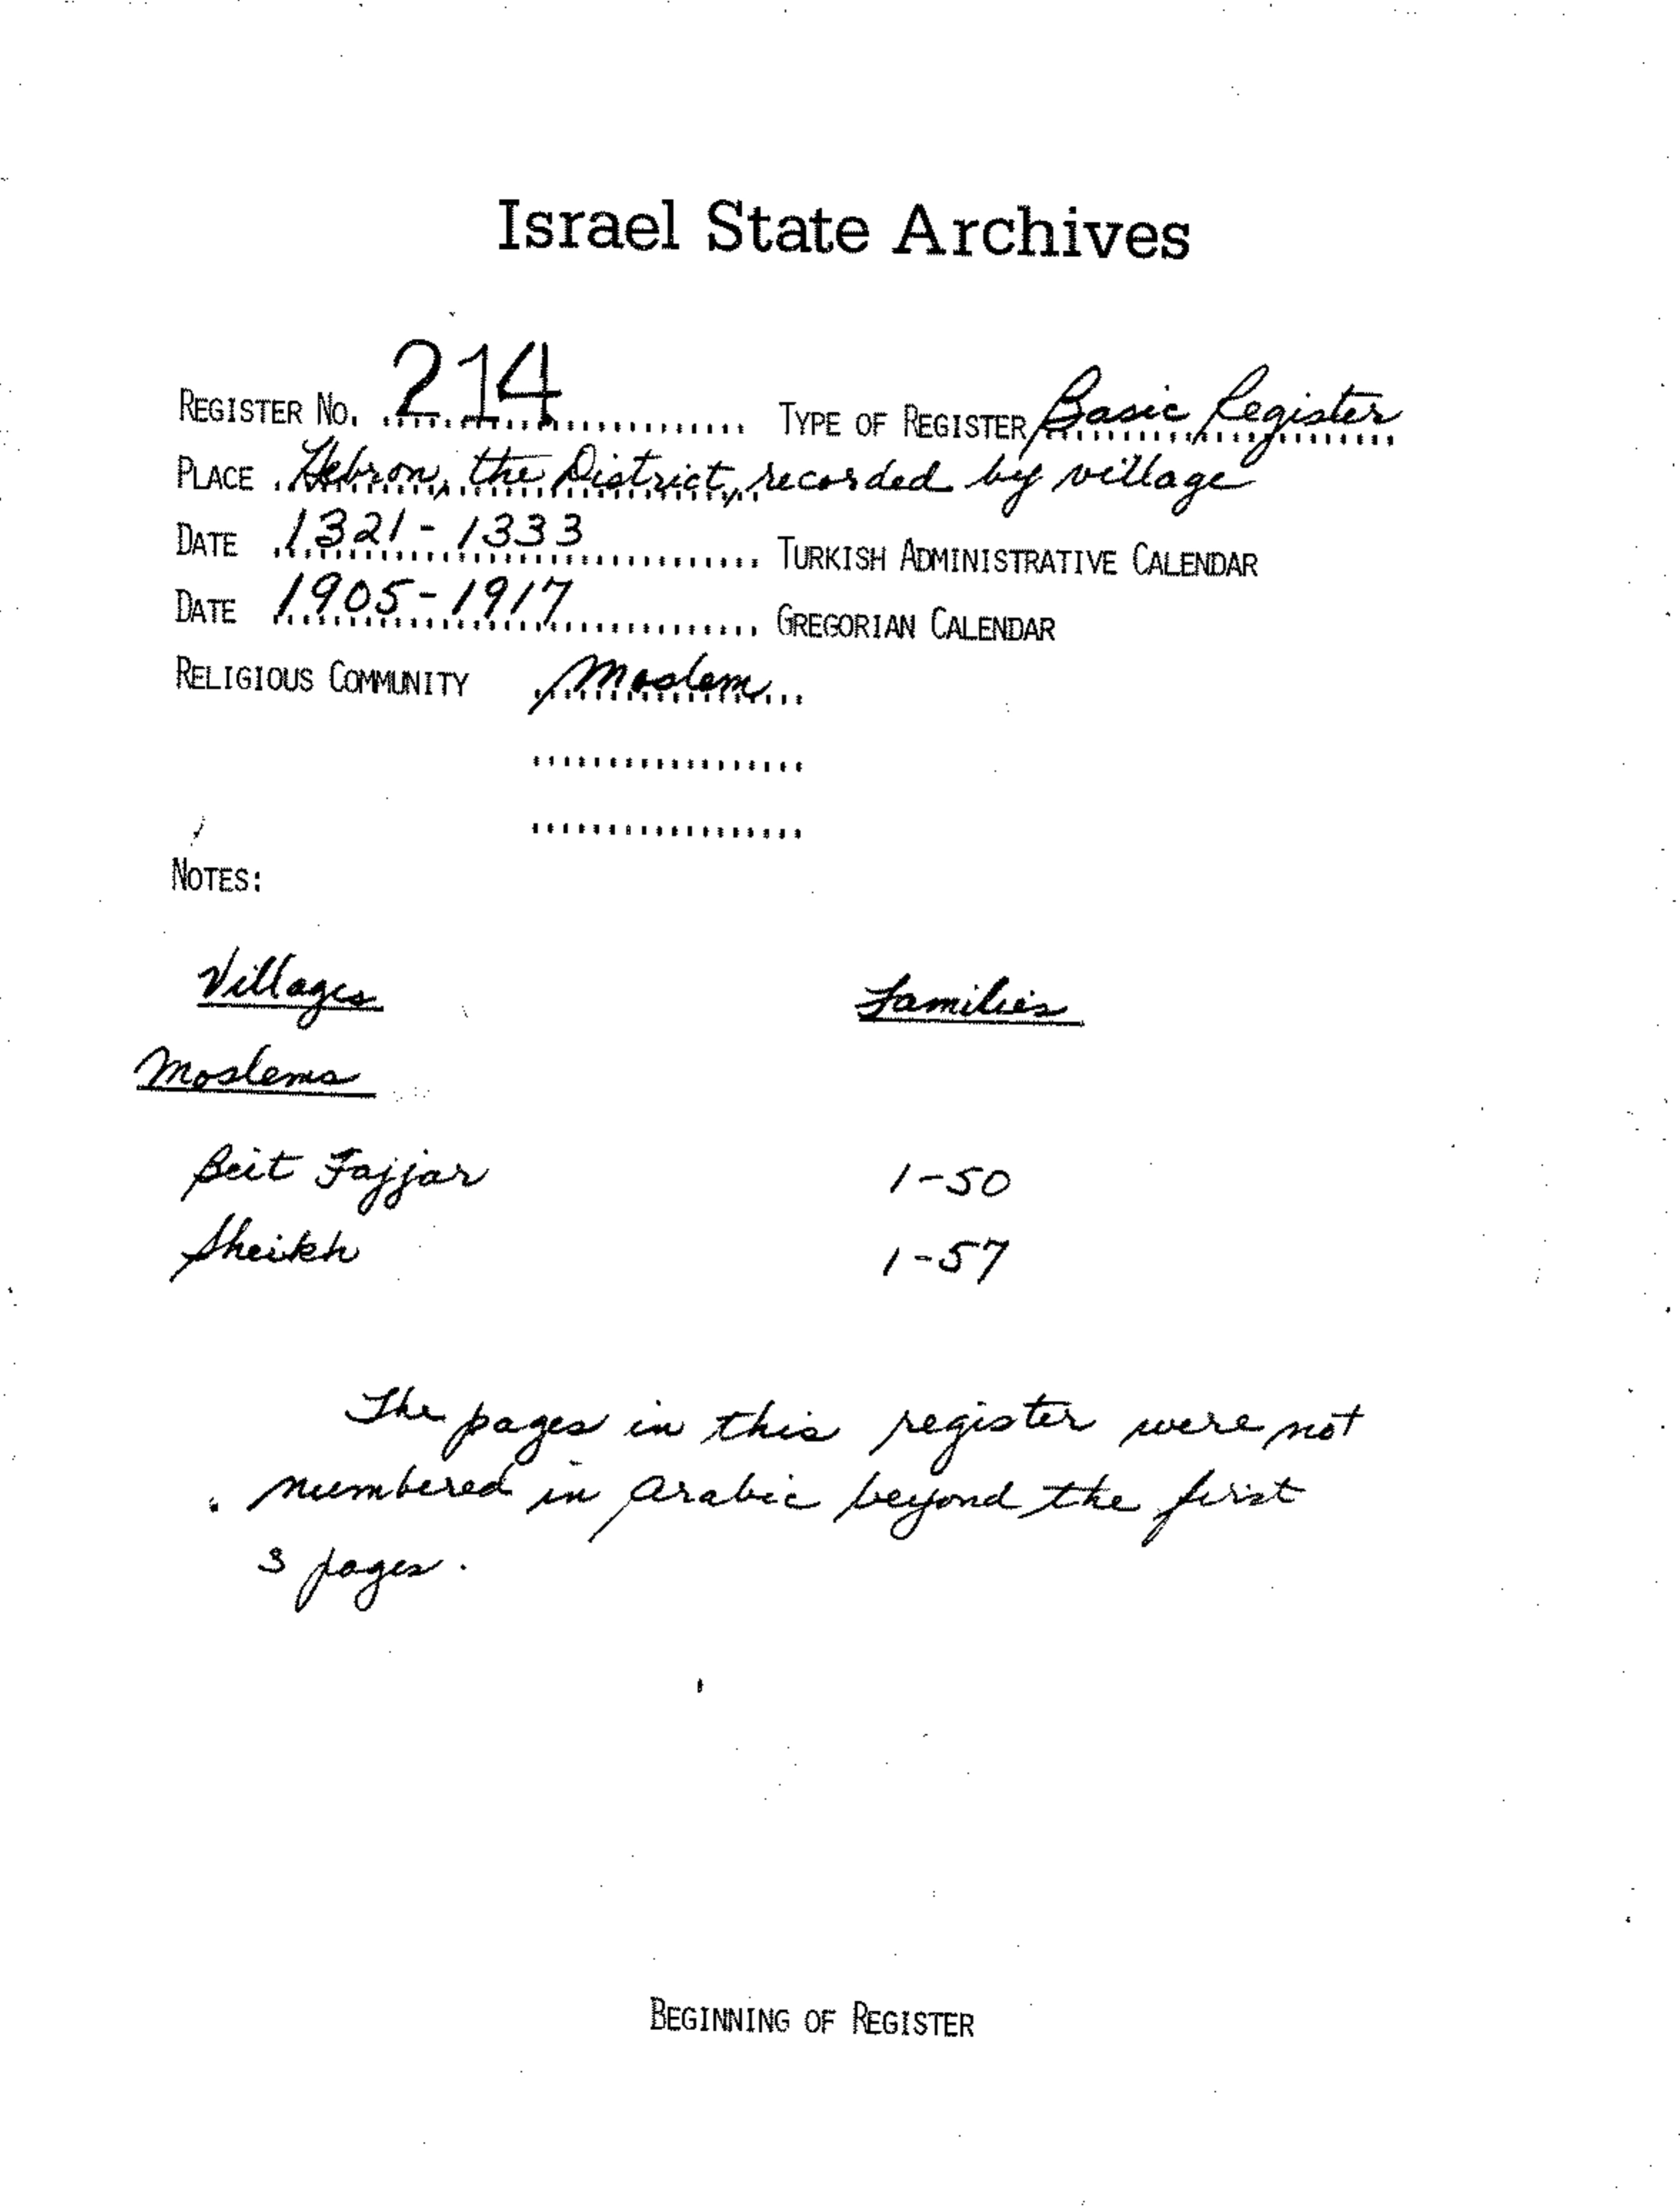 Israel State Archives
REGISTER NO. 214 TYPE OF REGISTER Basic Register
PLACE Hebron, the District, recorded by village
DATE 1321-1333 TURKISH ADMINISTRATIVE CALENDAR
DATE 1905-1917 GREGORIAN CALENDAR
RELIGIOUS COMMUNITY Moslem
NOTES:
Villages Families
Moslems
Beit Fajjar 1-50
Sheikh 1-57
The pages in this register were not
numbered in Arabic beyond the first
3 pages.
BEGINNING OF REGISTER